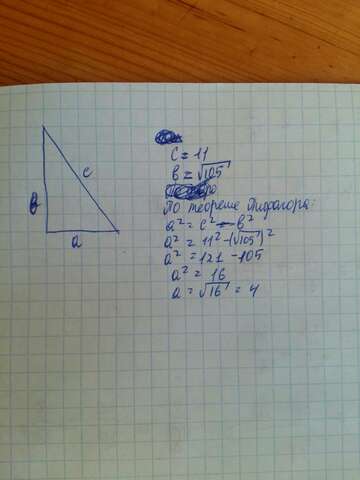 c = 11
в = √105
По теореме Пифагора:
a² = c² - в²
a² = 11² - (√105)²
a² = 121 - 105
a² = 16
a = √16 = 4
в
c
a